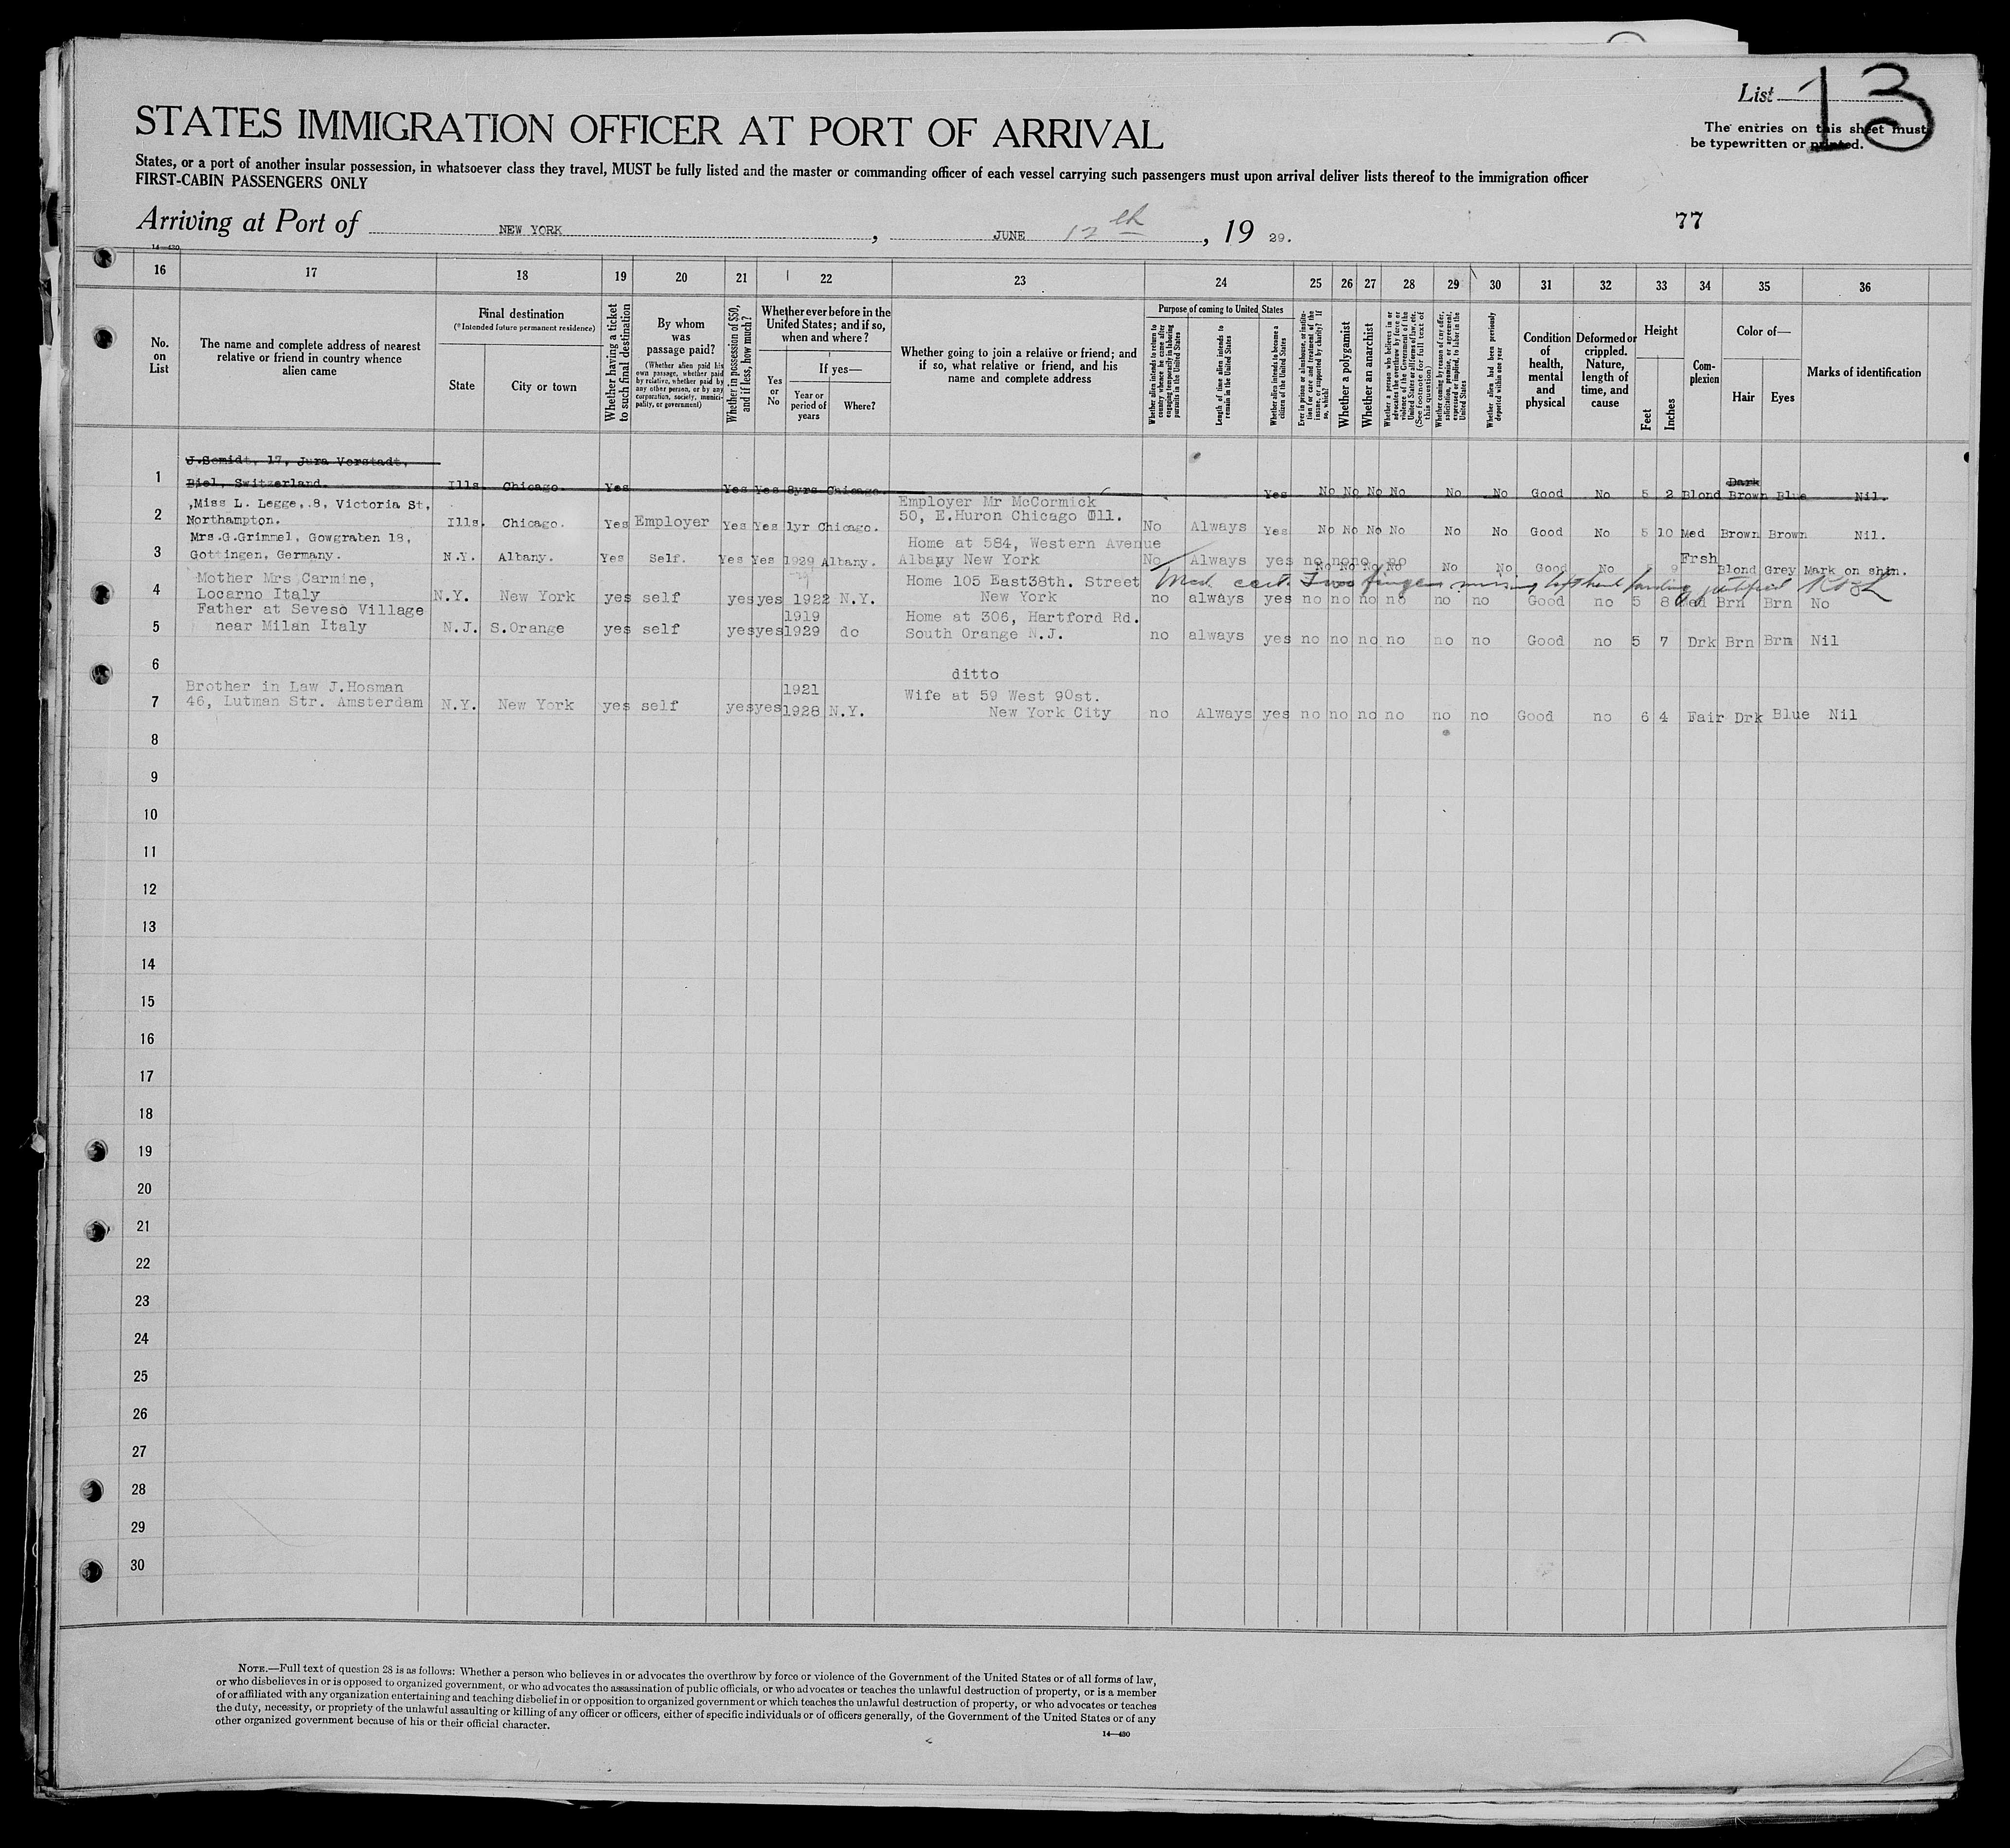 List 13
STATES IMMIGRATION OFFICER AT PORT OF ARRIVAL
The entries on this sheet must
be typewritten or printed.
States, or a port of another insular possession, in whatsoever class they travel, MUST be fully listed and the master or commanding officer of each vessel carrying such passengers must upon arrival deliver lists thereof to the immigration officer
FIRST-CABIN PASSENGERS ONLY
Arriving at Port of NEW YORK, JUNE 12th, 19 29.
77
14—430
16 17 18 19 20 21 22 23 24 25 26 27 28 29 30 31 32 33 34 35 36
No. on List
The name and complete address of nearest relative or friend in country whence alien came
Final destination
(*Intended future permanent residence)
State
City or town
Whether having a ticket to such final destination
By whom was passage paid?
(Whether alien paid his own passage, whether paid by relative, whether paid by any other person, or by any corporation, society, municipality, or government)
Whether in possession of $50, and if less, how much?
Whether ever before in the United States; and if so, when and where?
Yes or No
If yes—
Year or period of years
Where?
Whether going to join a relative or friend; and if so, what relative or friend, and his name and complete address
Purpose of coming to United States
Whether alien intends to return to country whence he came after engaging temporarily in laboring pursuits in the United States
Length of time alien intends to remain in the United States
Whether alien intends to become a citizen of the United States
Ever in prison or almshouse, or institution for care and treatment of the insane, or supported by charity? If so, which?
Whether a polygamist
Whether an anarchist
Whether a person who believes in or advocates the overthrow by force or violence of the Government of the United States or all forms of law, etc. (See footnote for full text of this question)
Whether coming by reason of any offer, solicitation, promise, or agreement, expressed or implied, to labor in the United States
Whether alien had been previously deported within one year
Condition of health, mental and physical
Deformed or crippled. Nature, length of time, and cause
Height
Feet
Inches
Complexion
Color of—
Hair
Eyes
Marks of identification
J.Semidt, 17, Jura Vorstadt,
Dark
1 Biel, Switzerland. Ills. Chicago. Yes Yes Yes 8yrs Chicago. Yes No No No No No No Good No 5 2 Blond Brown Blue Nil.
,Miss L. Legge,.8, Victoria St, Employer Mr McCormick
2 Northampton. Ills. Chicago. Yes Employer Yes Yes 1yr Chicago. 50, E.Huron Chicago Ill. No Always Yes No No No No No No Good No 5 10 Med Brown Brown Nil.
Mrs.G.Grimmel, Gowgraben 18, Home at 584, Western Avenue
3 Gottingen, Germany. N.Y. Albany. Yes Self. Yes Yes 1929 Albany. Albany New York No Always yes no no no no
No No No No No No Good No 9 Frsh Blond Grey Mark on shin.
Med cert. Two fingers missing left hand landing
Mother Mrs Carmine, Home 105 East38th. Street
4 Locarno Italy N.Y. New York yes self yes yes 1922 N.Y. New York no always yes no no no no no no Good no 5 8 Med Brn Brn No
Father at Seveso Village 1919 Home at 306, Hartford Rd.
5 near Milan Italy N.J. S.Orange yes self yes yes 1929 do South Orange N.J. no always yes no no no no no no Good no 5 7 Drk Brn Brn Nil
6 ditto
Brother in Law J.Hosman 1921 Wife at 59 West 90st.
7 46, Lutman Str. Amsterdam N.Y. New York yes self yes yes 1928 N.Y. New York City no Always yes no no no no no no Good no 6 4 Fair Drk Blue Nil
8
9
10
11
12
13
14
15
16
17
18
19
20
21
22
23
24
25
26
27
28
29
30
NOTE.—Full text of question 28 is as follows: Whether a person who believes in or advocates the overthrow by force or violence of the Government of the United States or of all forms of law,
or who disbelieves in or is opposed to organized government, or who advocates the assassination of public officials, or who advocates or teaches the unlawful destruction of property, or is a member
of or affiliated with any organization entertaining and teaching disbelief in or opposition to organized government or which teaches the unlawful destruction of property, or who advocates or teaches
the duty, necessity, or propriety of the unlawful assaulting or killing of any officer or officers, either of specific individuals or of officers generally, of the Government of the United States or of any
other organized government because of his or their official character.
14—430